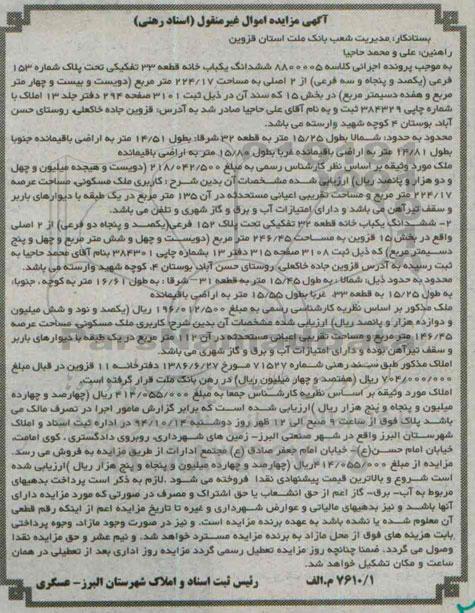 آگهی مزایده اموال غیرمنقول (اسناد رهنی)
بستانکار: مدیریت شعب بانک ملت استان قزوین
راهنین: علی و محمد حاجیا
به موجب پرونده اجرائی کلاسه ۸۸۰۰۰۰۵ ششدانگ یکباب خانه قطعه ۳۳ تفکیکی تحت پلاک شماره ۱۵۳
فرعی (یکصد و پنجاه و سه فرعی) از ۲ اصلی به مساحت ۲۲۴/۱۷ متر مربع (دویست و بیست و چهار متر
مربع و هفده دسیمتر مربع) در بخش ۱۵ که سند آن در ذیل ثبت ۳۱۰۱ صفحه ۲۹۴ دفتر جلد ۱۳ املاک با
شماره چاپی ۳۸۴۳۲۹ ثبت و به نام آقای علی حاجیا صادر شد به آدرس: قزوین جاده خاکعلی، روستای حسن
آباد، بوستان ۴ کوچه شهید وارسته می باشد.
محدود به حدود: شمالا بطول ۱۵/۲۵ متر به قطعه ۳۲ شرقا: بطول ۱۴/۵۱ متر به اراضی باقیمانده جنوبا
بطول ۱۴/۸۱ متر به اراضی باقیمانده غربا بطول ۱۵/۸۰ متر به اراضی باقیمانده
ملک مورد وثیقه بر اساس نظر کارشناس رسمی به مبلغ ۲۱۸/۰۴۲/۵۰۰ (دویست و هیجده میلیون و چهل
و دو هزار و پانصد ریال) ارزیابی شده مشخصات آن بدین شرح: کاربری ملک مسکونی، مساحت عرصه
۲۲۴/۱۷ متر مربع و مساحت تقریبی اعیانی مستحدثه در آن ۱۳۵ متر مربع در یک طبقه با دیوارهای باربر
و سقف تیرآهن می باشد و دارای امتیازات آب و برق و گاز شهری و تلفن می باشد.
۲- ششدانگ یکباب خانه قطعه ۳۲ تفکیکی تحت پلاک ۱۵۲ فرعی (یکصد و پنجاه دو فرعی) از ۲ اصلی
واقع در بخش ۱۵ قزوین به مساحت ۲۴۶/۴۵ متر مربع (دویست و چهل و شش متر مربع و چهل و پنج
دسیمتر مربع) که ذیل ثبت ۳۱۰۸ صفحه ۳۱۵ دفتر ۱۳ بشماره چاپی ۳۸۴۳۰۱ بنام آقای محمد حاجیا به
ثبت رسیده به آدرس قزوین جاده خاکعلی، روستای حسن آباد، بوستان ۴، کوچه شهید وارسته می باشد.
محدود به حدود ذیل: شمالا: به طول ۱۵/۴۵ متر به قطعه ۳۱- شرقا: به طول ۱۶/۶۱ متر به کوچه، جنوبا:
به طول ۱۵/۲۵ به قطعه ۳۳، غربا بطول ۱۵/۵۵ متر به اراضی باقیمانده
ملک مذکور بر اساس نظریه کارشناسی رسمی به مبلغ ۱۹۶/۰۱۲/۵۰۰ ریال (یکصد و نود و شش میلیون
و دوازده هزار و پانصد ریال) ارزیابی شده مشخصات آن بدین شرح: کاربری ملک مسکونی مساحت عرصه
۲۴۶/۴۵ متر مربع و مساحت تقریبی اعیانی مستحدثه در آن ۱۱۲ متر مربع در یک طبقه با دیوارهای باربر
و سقف تیرآهن بوده و دارای امتیازات آب و برق و گاز شهری می باشد.
املاک مذکور طبق سند رهنی شماره ۷۱۵۲۷ مورخ ۱۳۸۶/۶/۲۷ دفترخانه ۱۱ قزوین در قبال مبلغ
۷۰۴/۰۰۰/۰۰۰ ریال (هفتصد و چهار میلیون ریال) در رهن بانک ملت قرار گرفته است.
املاک مورد وثیقه بر اساس نظریه کارشناس جمعا به مبلغ ۴۱۴/۰۵۵/۰۰۰ ریال (چهارصد و چهارده
میلیون و پنجاه و پنج هزار ریال) ارزیابی شده است که برابر گزارش مامور اجرا در تصرف مالک می
باشد پلاک فوق از ساعت ۹ صبح الی ۱۲ ظهر روز دوشنبه ۹۴/۱۰/۱۴ در اداره ثبت اسناد و املاک
شهرستان البرز واقع در شهر صنعتی البرز- زمین های شهرداری، روبروی دادگستری، کوی امامت،
خیابان امام حسن(ع)- خیابان امام جعفر صادق (ع) مجتمع ادارات از طریق مزایده به فروش می رسد.
مزایده از مبلغ ۴۱۴/۰۵۵/۰۰۰ ریال (چهارصد و چهارده میلیون و پنجاه و پنج هزار ریال) ارزیابی شده
است شروع و بالاترین قیمت پیشنهادی نقدا فروخته می شود. لازم به ذکر است پرداخت بدهیهای
مربوط به آب- برق- گاز اعم از حق انشعاب یا حق اشتراک و مصرف در صورتی که مورد مزایده دارای
آنها باشد و نیز بدهیهای مالیاتی و عوارض شهرداری و غیره تا تاریخ مزایده اعم از اینکه رقم قطعی
آن معلوم شده یا نشده باشد به عهده برنده مزایده است. و نیز در صورت وجود مازاد، وجوه پرداختی
بابت هزینه های فوق از محل مازاد به برنده مزایده مسترد خواهد شد. و نیم عشر و حق مزایده نقدا
وصول می گردد. ضمنا چنانچه روز مزایده تعطیل رسمی گردد مزایده روز اداری بعد از تعطیلی در همان
ساعت و مکان تشکیل خواهد شد.
۷۶۱۰/۱ م.الف رئیس ثبت اسناد و املاک شهرستان البرز- عسگری